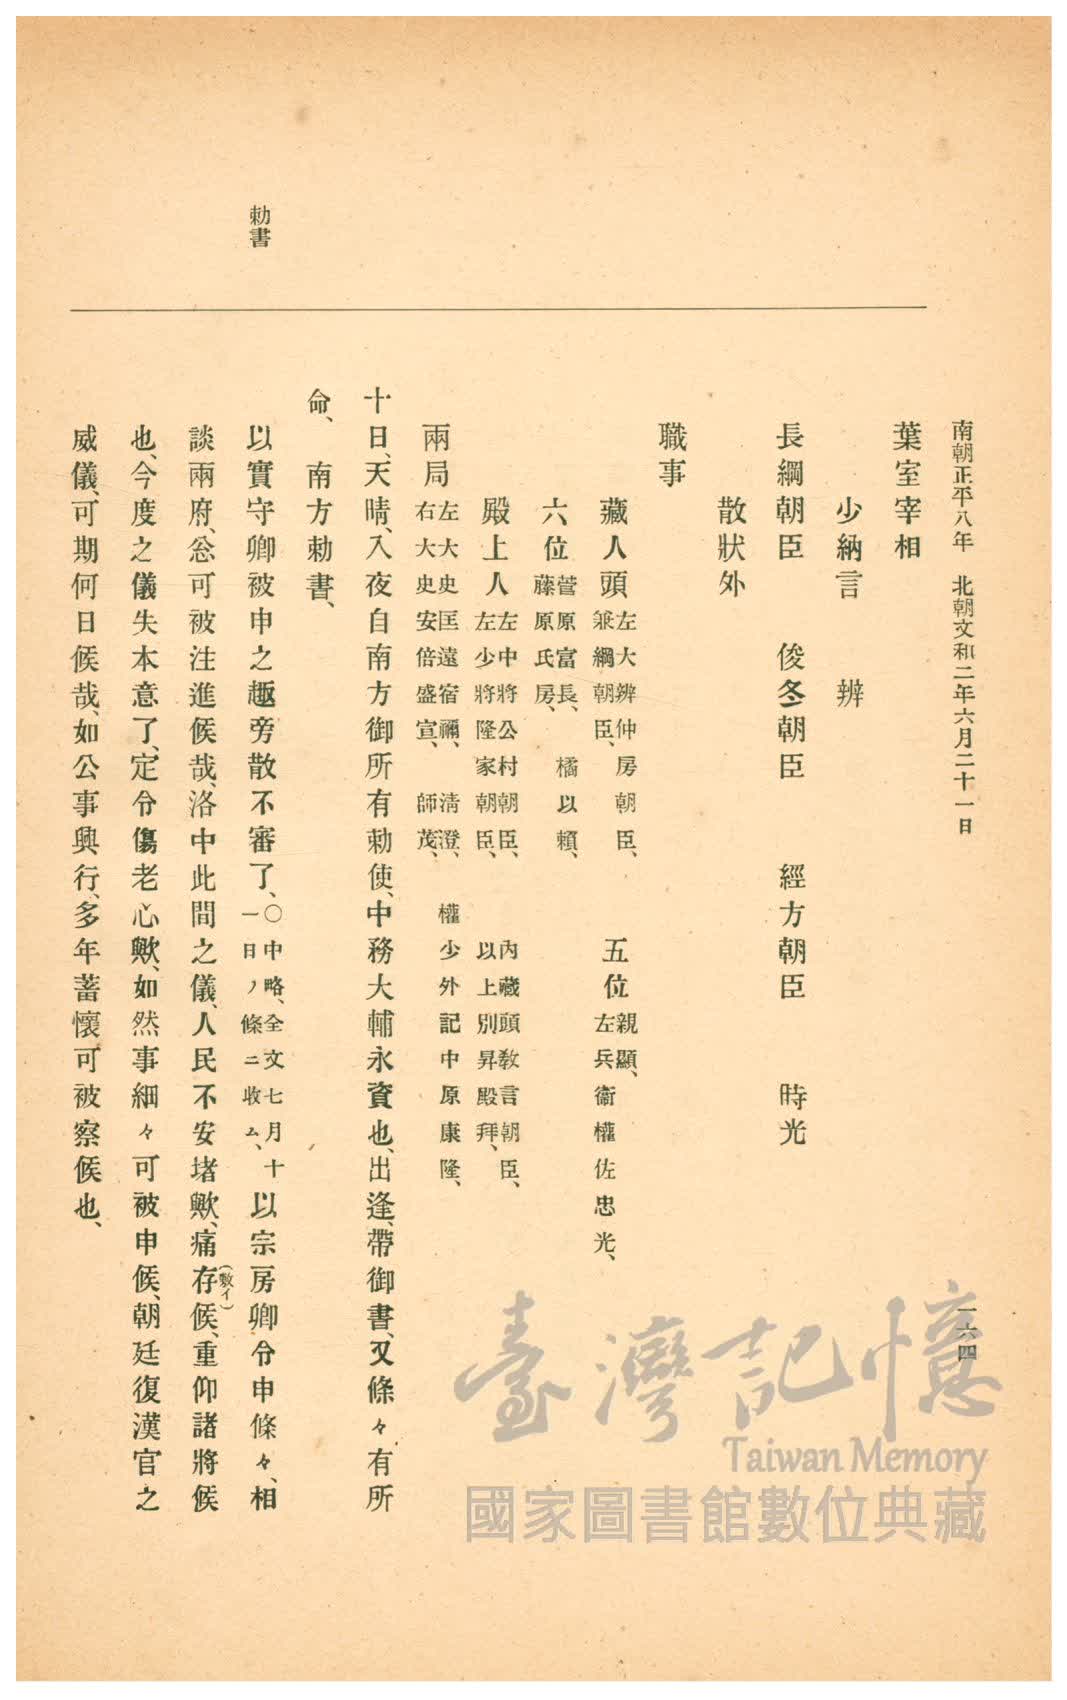 南朝正平八年　北朝文和二年六月二十一日
一六四
葉室宰相
少納言　辨
長綱朝臣　俊冬朝臣　經方朝臣　時光
散狀外
職事
藏人頭　左大辨仲房朝臣、兼綱朝臣、　五位　親顯、左兵衞權佐忠光、
六位　菅原富長、藤原氏房、　橘以賴、
殿上人　左中將公村朝臣、左少將隆家朝臣、　內藏頭敎言朝臣、以上別昇殿拜、
兩局　左大史匡遠宿禰、右大史安倍盛宣、　淸澄、師茂、　權少外記中原康隆、
十日、天晴、入夜自南方御所有勅使、中務大輔永資也、出逢、帶御書、又條々有所
命、　南方勅書、
勅書
以實守卿被申之趣旁散不審了、〇中略、全文七月十一日ノ條ニ收ム、以宗房卿令申條々、相
談兩府、忩可被注進候哉、洛中此間之儀、人民不安堵歟、痛存(歎イ)候、重仰諸將候
也、今度之儀失本意了、定令傷老心歟、如然事細々可被申候、朝廷復漢官之
威儀、可期何日候哉、如公事興行、多年蓄懷可被察候也、
臺灣記憶
Taiwan Memory
國家圖書館數位典藏